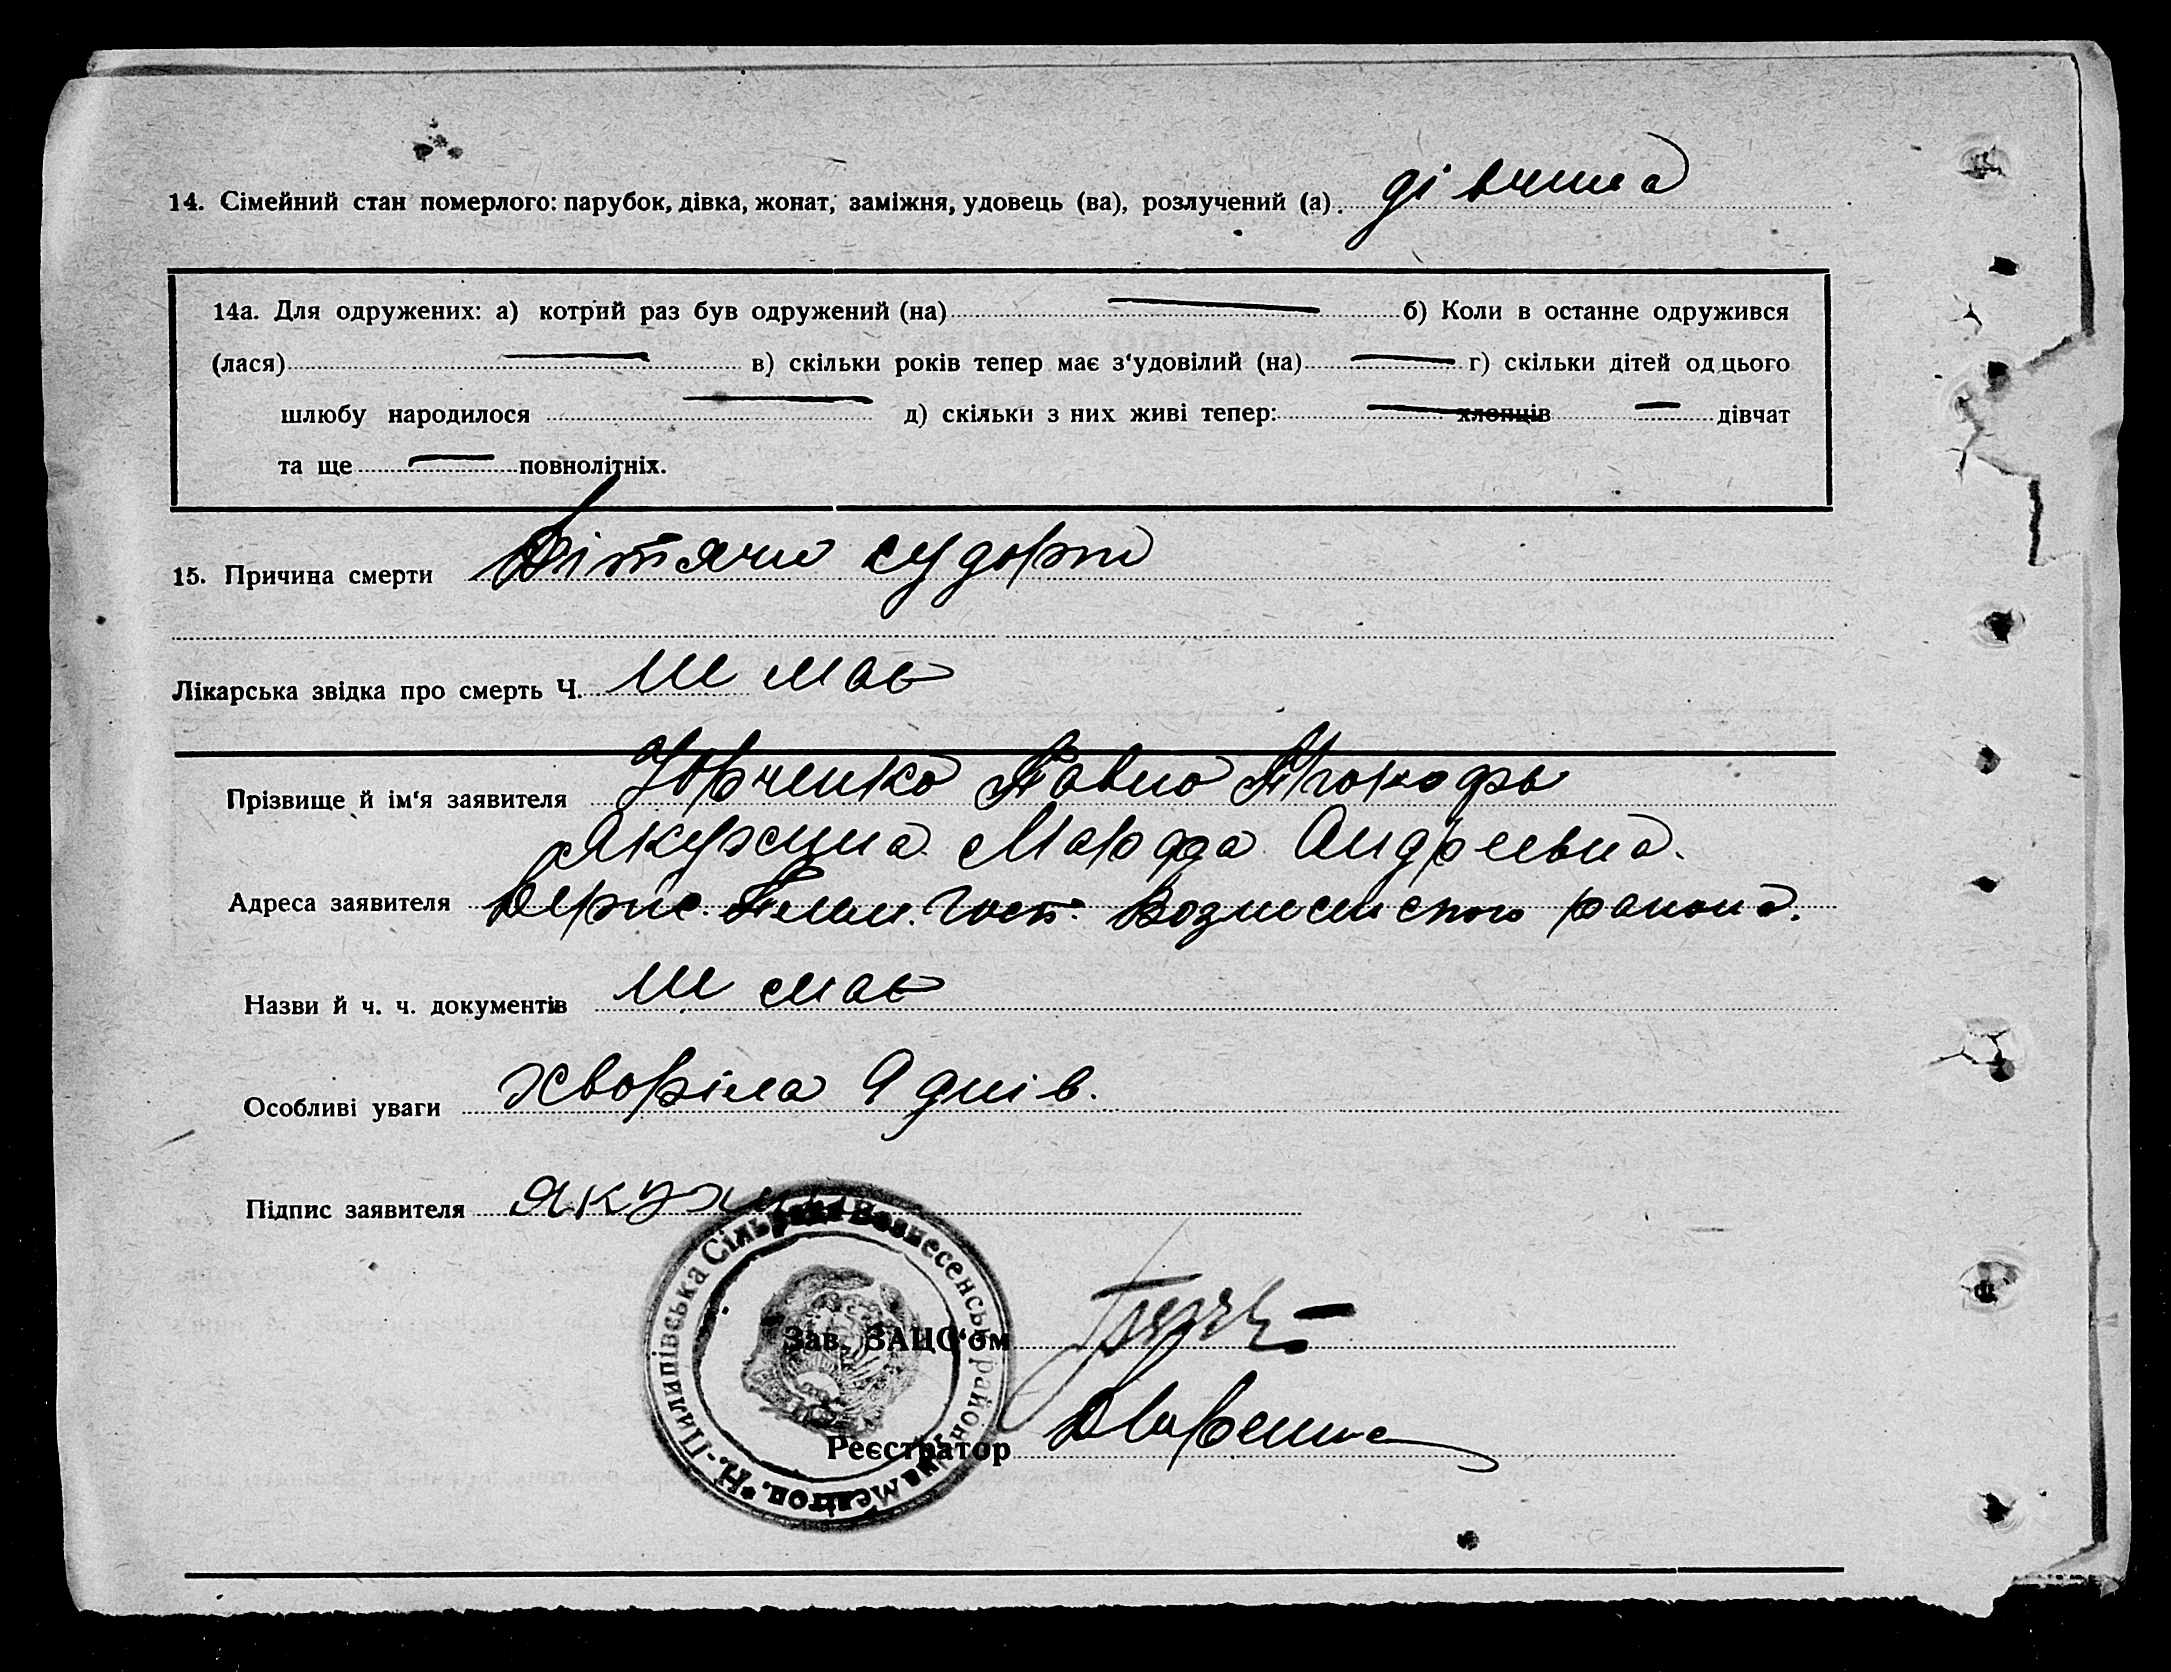 14. Сімейний стан померлого: парубок, дівка, жонат, заміжня, удовець (ва), розлучений (а). дівчина
14а. Для одружених: а) котрий раз був одружений (на) б) Коли в останне одружився
(лася) в) скільки років тепер має з'удовілий (на) г) скільки дітей од цього
шлюбу народилося д) скільки з них живі тепер: хлопців дівчат
та ще повнолітніх.
15. Причина смерти Дітячи судорги
Лікарська звідка про смерть Ч. Не має
Прізвище й ім'я заявителя Юрченко Павло Прокофь
Якухина Марфа Андреевна.
Адреса заявителя Держ. Плем. Госп. Вознесенского района.
Назви й ч. ч. документів Не має
Особливі уваги Хворіла 9 днів.
Підпис заявителя Якухи
Н.-Пилипівська Сільрада Вознесенськ. району на Меліт​оп.
Зав. ЗАЦС'ом
Реєстратор